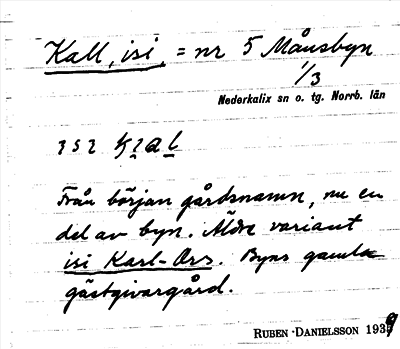 Kall, isi, = nr 5 Månsbyn
1/3
Nederkalix sn o. tg. Norrb. län
Från början gårdsnamn, nu en
del av byn. Äldre variant
isi Karl-Ors. Byns gamla
gästgivargård.
RUBEN DANIELSSON 1939